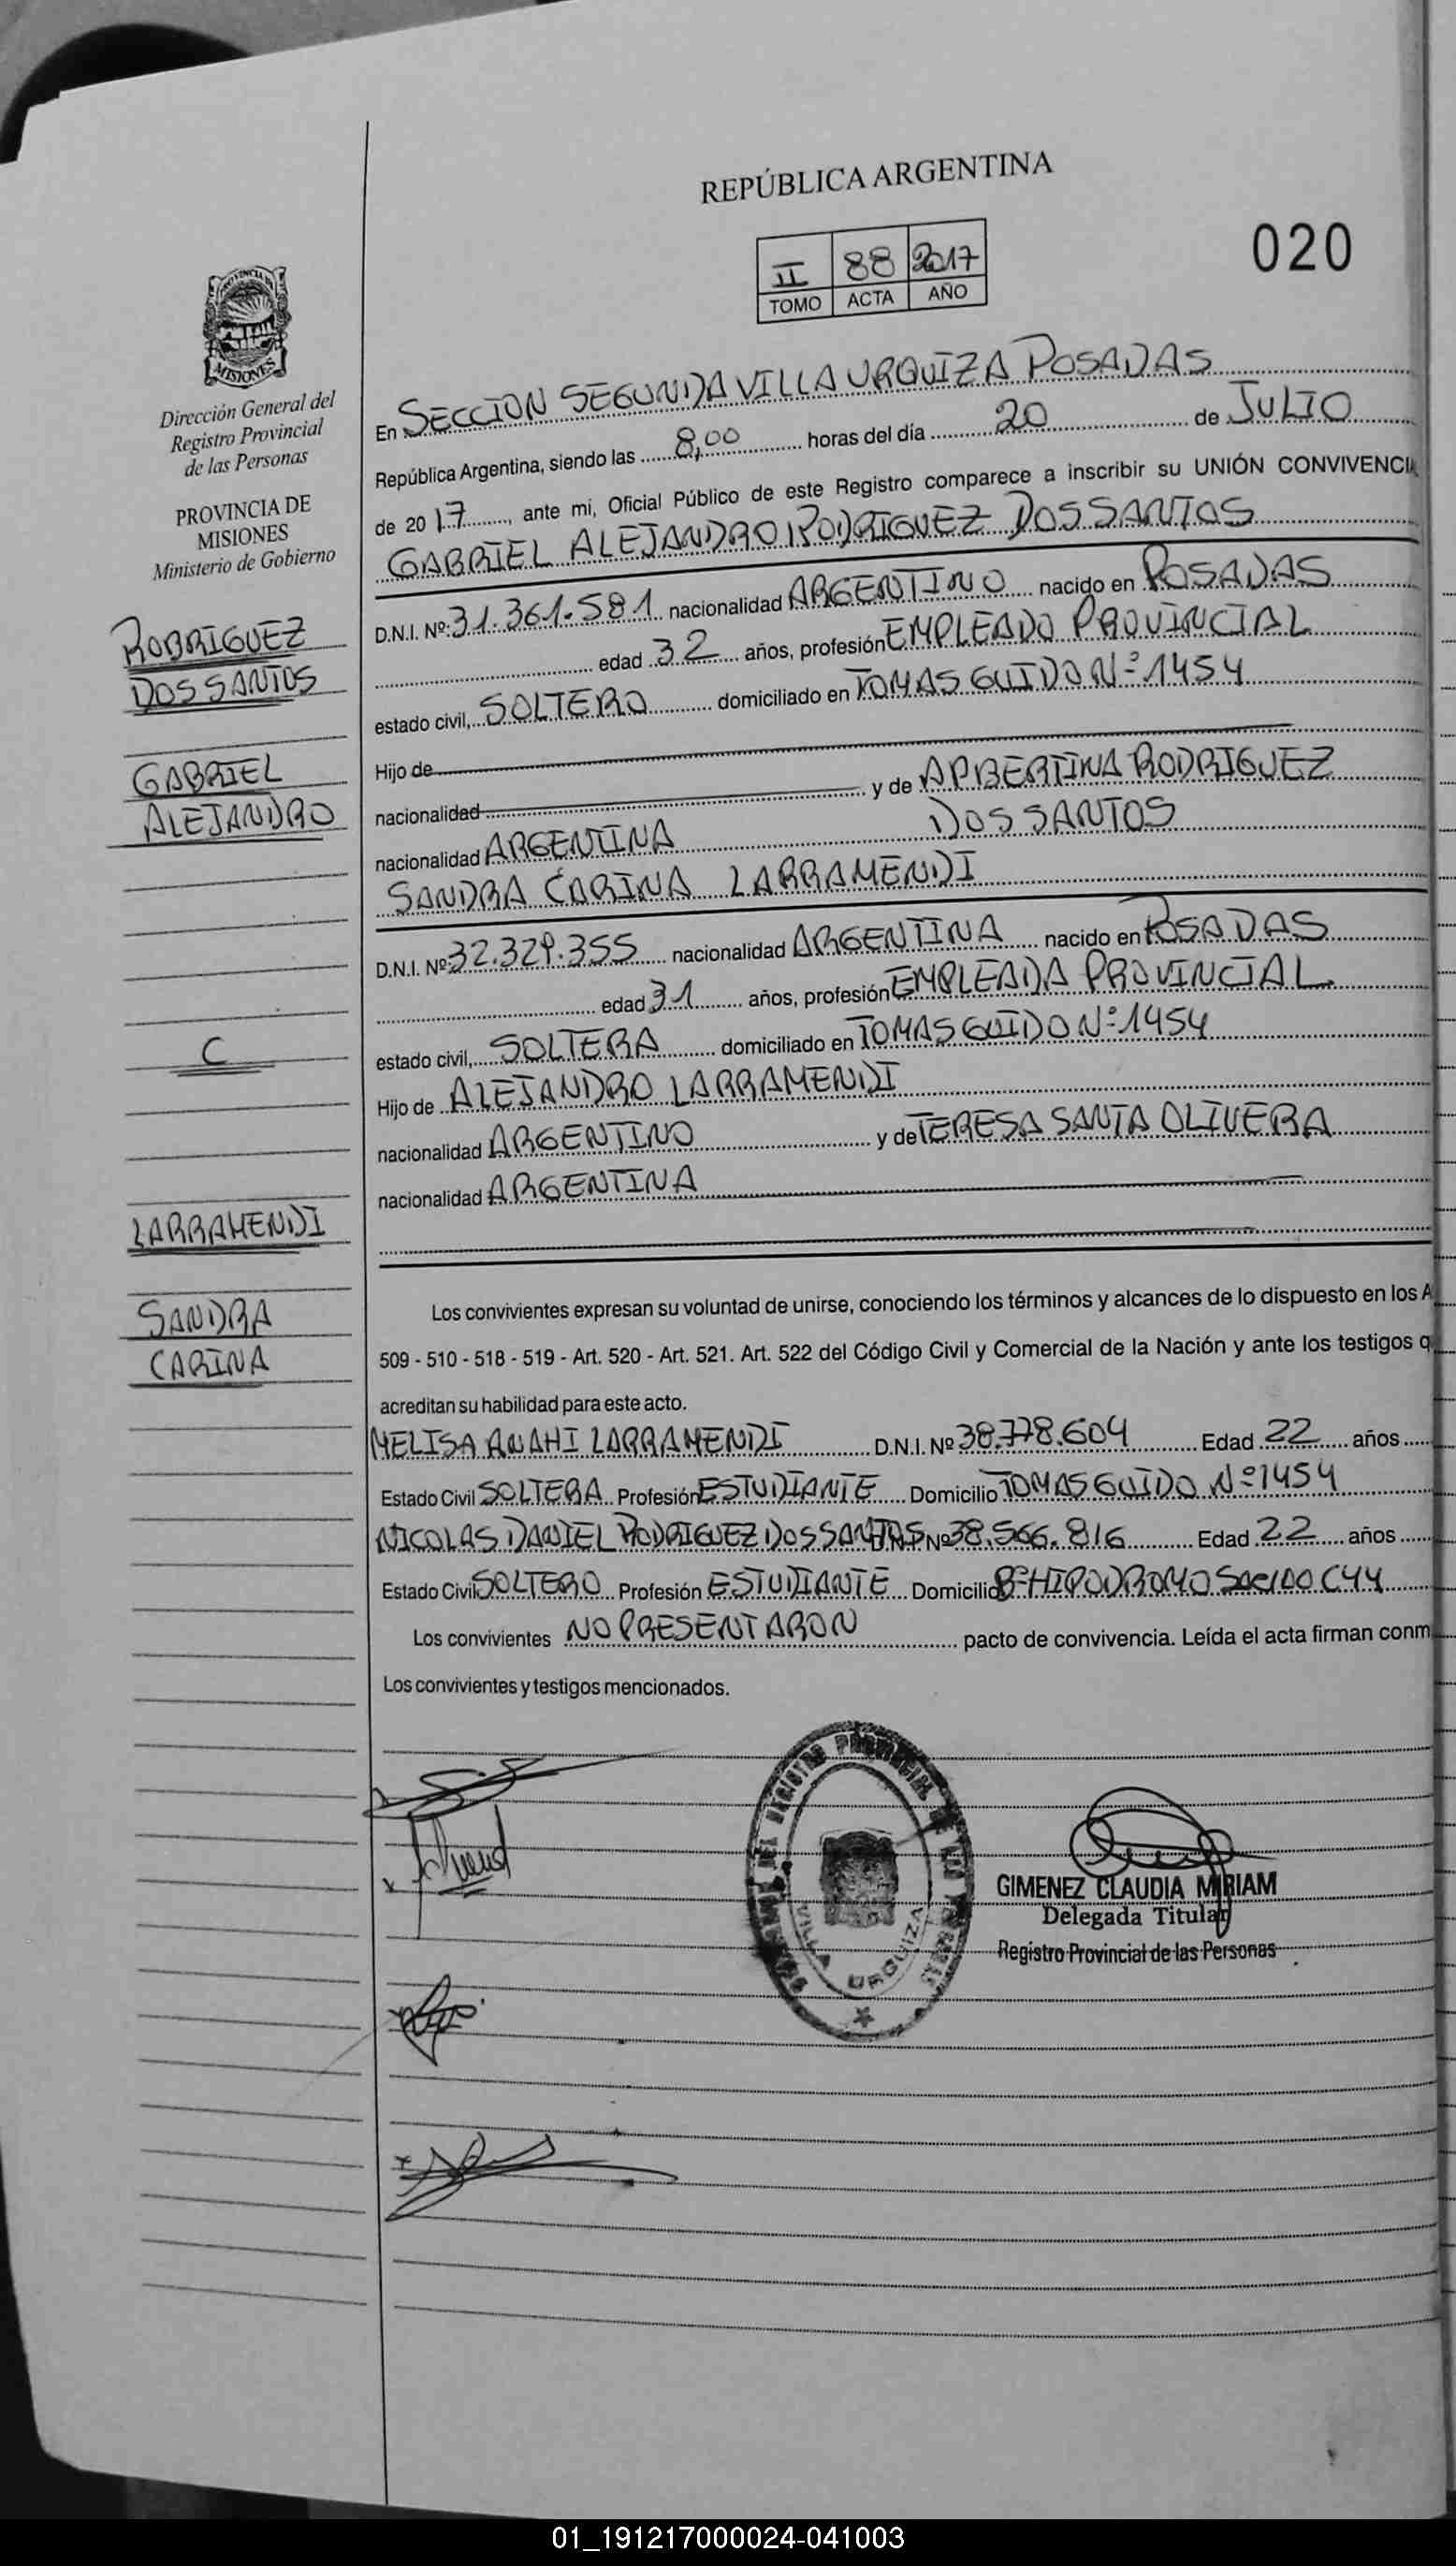 REPÚBLICA ARGENTINA
020
II 88 2017
TOMO ACTA AÑO
PROVINCIA DE
MISIONES
Dirección General del
Registro Provincial
de las Personas
PROVINCIA DE
MISIONES
Ministerio de Gobierno
RODRIGUEZ
DOS SANTOS
GABRIEL
ALEJANDRO
C
LARRAMENDI
SANDRA
CARINA
En SECCION SEGUNDA VILLA URQUIZA POSADAS
República Argentina, siendo las 8,00 horas del día 20 de JULIO
de 2017, ante mi, Oficial Público de este Registro comparece a inscribir su UNIÓN CONVIVENCIA
GABRIEL ALEJANDRO RODRIGUEZ DOS SANTOS
D.N.I. Nº: 31.361.581 nacionalidad ARGENTINO nacido en POSADAS
edad 32 años, profesión EMPLEADO PROVINCIAL
estado civil, SOLTERO domiciliado en TOMAS GUIDO Nº 1454
Hijo de
nacionalidad y de ALBERTINA RODRIGUEZ
nacionalidad ARGENTINA DOS SANTOS
SANDRA CARINA LARRAMENDI
D.N.I. Nº 32.329.355 nacionalidad ARGENTINA nacido en POSADAS
edad 31 años, profesión EMPLEADA PROVINCIAL
estado civil, SOLTERA domiciliado en TOMAS GUIDO Nº 1454
Hijo de ALEJANDRO LARRAMENDI
nacionalidad ARGENTINO y de TERESA SANTA OLIVERA
nacionalidad ARGENTINA
Los convivientes expresan su voluntad de unirse, conociendo los términos y alcances de lo dispuesto en los A
509 - 510 - 518 - 519 - Art. 520 - Art. 521. Art. 522 del Código Civil y Comercial de la Nación y ante los testigos q
acreditan su habilidad para este acto.
MELISA ANAHI LARRAMENDI D.N.I. Nº 38.778.604 Edad 22 años
Estado Civil SOLTERA Profesión ESTUDIANTE Domicilio TOMAS GUIDO Nº 1454
NICOLAS DANIEL RODRIGUEZ DOS SANTOS Nº 38.566.816 Edad 22 años
Estado Civil SOLTERO Profesión ESTUDIANTE Domicilio Bº HIPODROMO C44
Los convivientes NO PRESENTARON pacto de convivencia. Leída el acta firman conm
Los convivientes y testigos mencionados.
DEL REGISTRO PROVINCIAL DE LAS PERSONAS
VILLA URQUIZA
GIMENEZ CLAUDIA MIRIAM
Delegada Titular
Registro Provincial de las Personas
01_191217000024-041003